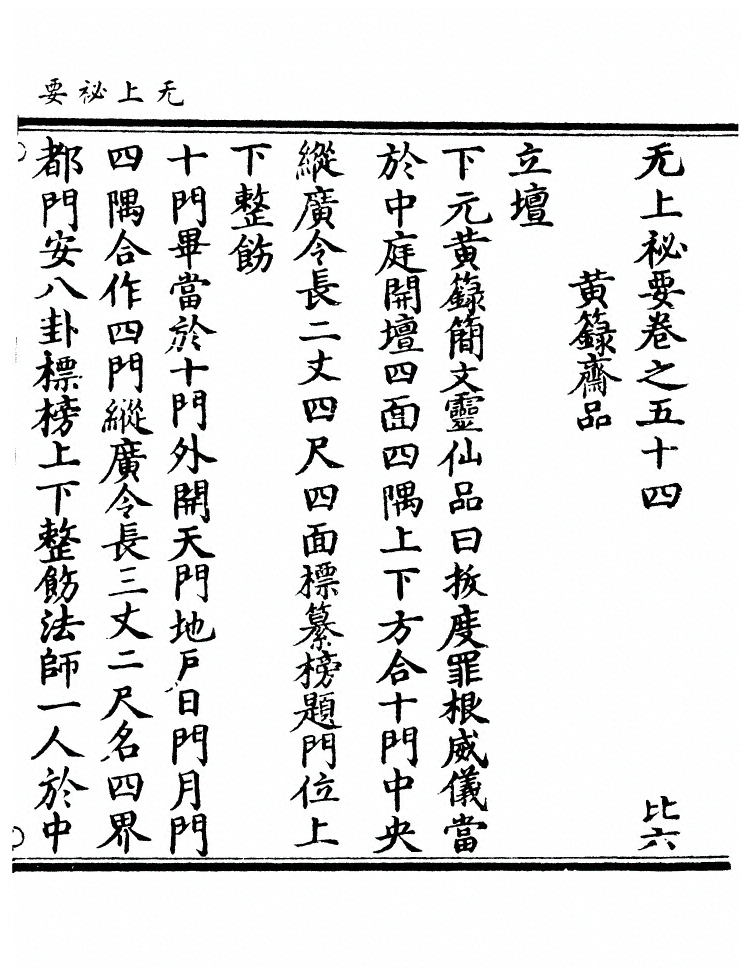 无上祕要
无上祕要卷之五十四
比六
黄籙齋品
立壇
下元黄籙簡文靈仙品曰拔度罪根威儀當
於中庭開壇四面四隅上下方合十門中央
縱廣令長二丈四尺四面標纂榜題門位上
下整飭
十門畢當於十門外開天門地戸日門月門
四隅合作四門縱廣令長三丈二尺名四界
都門安八卦標榜上下整飭法師一人於中